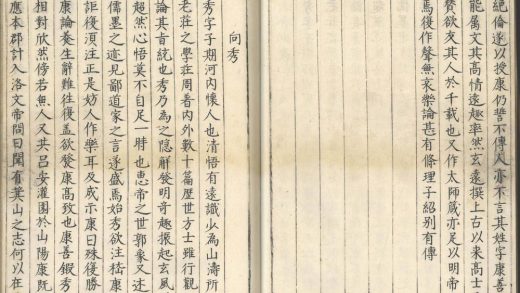 絶倫遂以授康仍誓不傳人亦不言其姓字康善
能屬文其高情遠趣率然玄遠撰上古以來高士
賛欲友其人於千載也又作太師箴亦足以明帝
焉復作聲無哀樂論甚有條理子紹別有傳
向秀
秀字子期河內懷人也清悟有遠識少為山濤所
老莊之學莊周著內外數十篇歷世方士雖行觀
論其旨統也秀乃為之隱解發明奇趣振起玄風
超然心悟莫不自足一時也惠帝之世郭象又述
儒墨之迹見鄙道家之言遂盛焉始秀欲注嵇康
詎復須注正是妨人作樂耳及成示康曰殊復勝
康論養生辭難往復蓋欲發康高致也康善鍛秀
相對欣然傍若無人又共呂安灌園於山陽康既
應本郡計入洛文帝問曰聞有箕山之志何以在